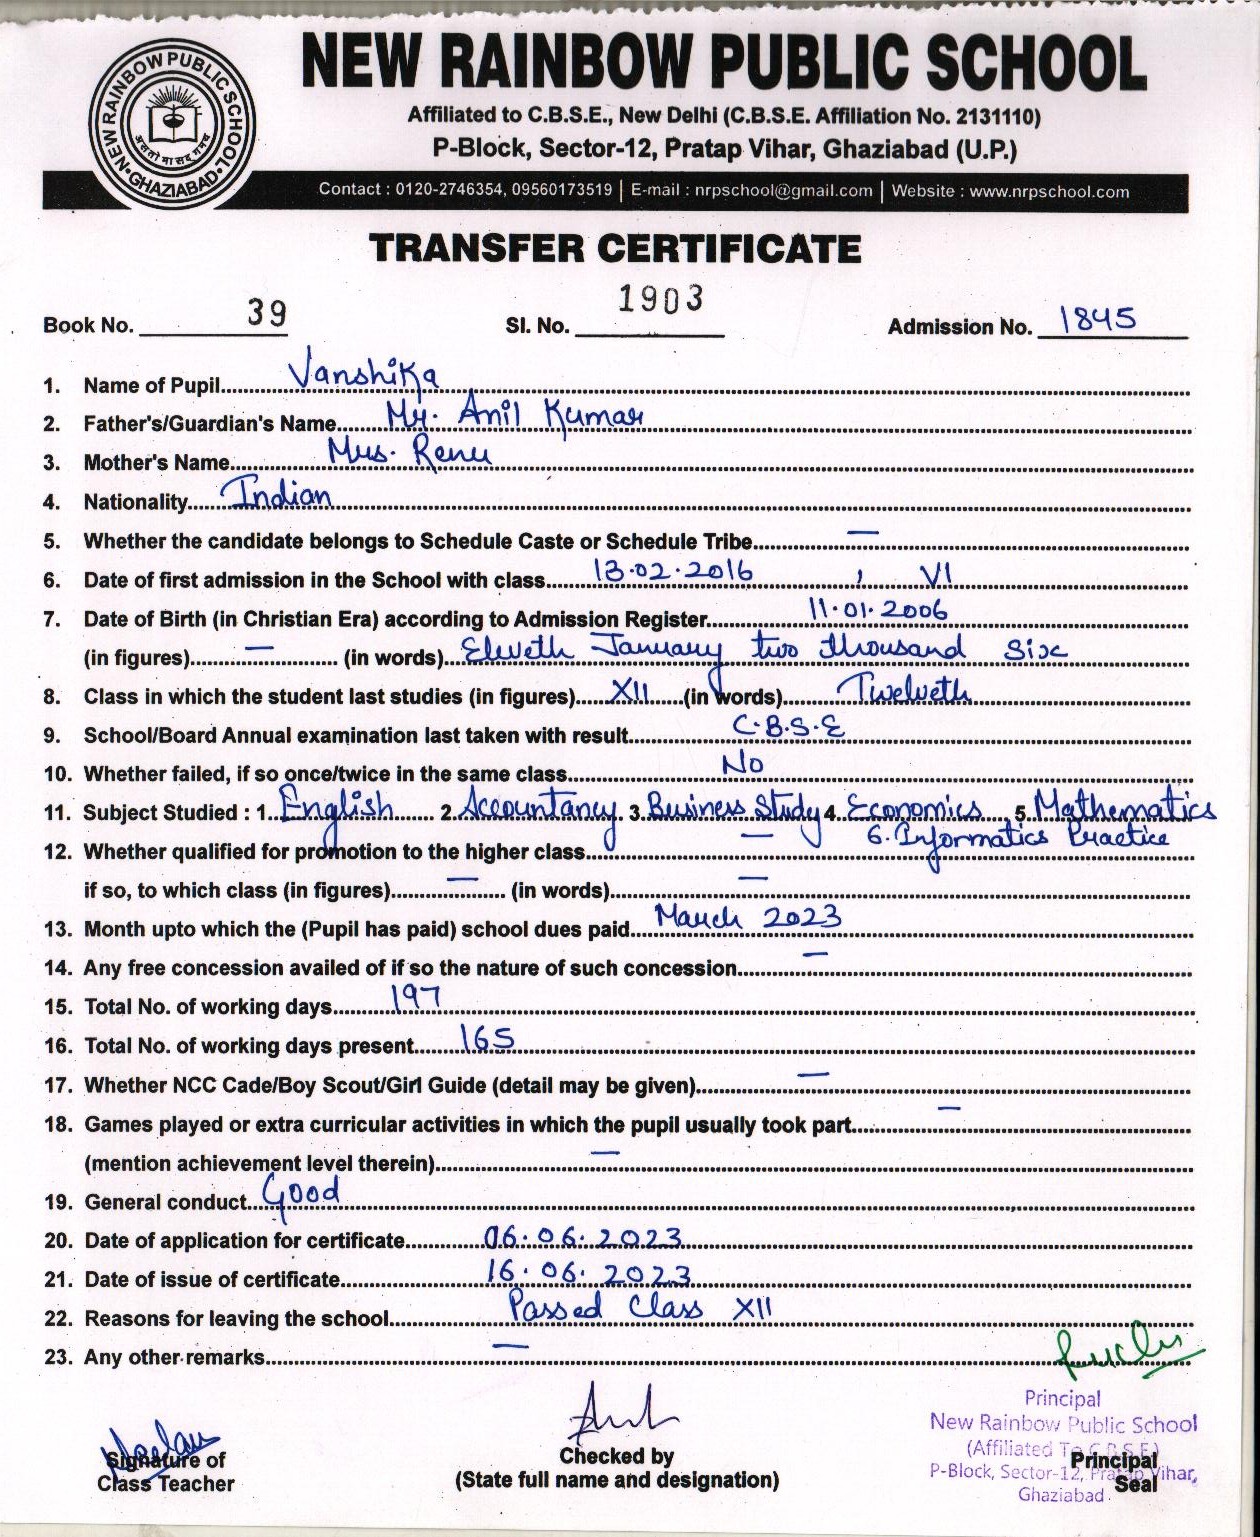 NEW RAINBOW PUBLIC SCHOOL
NEW RAINBOW PUBLIC SCHOOL
असतो मा सद् गमय
GHAZIABAD
Affiliated to C.B.S.E., New Delhi (C.B.S.E. Affiliation No. 2131110)
P-Block, Sector-12, Pratap Vihar, Ghaziabad (U.P.)
Contact : 0120-2746354, 09560173519 | E-mail : nrpschool@gmail.com | Website : www.nrpschool.com
TRANSFER CERTIFICATE
Book No. 39 Sl. No. 1903 Admission No. 1845
1. Name of Pupil Vanshika
2. Father's/Guardian's Name Mr. Anil Kumar
3. Mother's Name Mrs. Renu
4. Nationality Indian
5. Whether the candidate belongs to Schedule Caste or Schedule Tribe —
6. Date of first admission in the School with class 13.02.2016 , VI
7. Date of Birth (in Christian Era) according to Admission Register 11.01.2006
(in figures) — (in words) Elveth January two thousand Six
8. Class in which the student last studies (in figures) XII (in words) Twelveth
9. School/Board Annual examination last taken with result C.B.S.E
10. Whether failed, if so once/twice in the same class No
11. Subject Studied : 1. English 2. Accountancy 3. Business Study 4. Economics 5. Mathematics
6. Informatics Practice
12. Whether qualified for promotion to the higher class —
if so, to which class (in figures) — (in words) —
13. Month upto which the (Pupil has paid) school dues paid March 2023
14. Any free concession availed of if so the nature of such concession —
15. Total No. of working days 197
16. Total No. of working days present 165
17. Whether NCC Cade/Boy Scout/Girl Guide (detail may be given) —
18. Games played or extra curricular activities in which the pupil usually took part —
(mention achievement level therein) —
19. General conduct Good
20. Date of application for certificate 06.06.2023
21. Date of issue of certificate 16.06.2023
22. Reasons for leaving the school Passed Class XII
23. Any other remarks —
Principal
New Rainbow Public School
(Affiliated To C.B.S.E)
P-Block, Sector-12, Pratap Vihar,
Ghaziabad
Signature of
Class Teacher
Checked by
(State full name and designation)
Principal
Seal